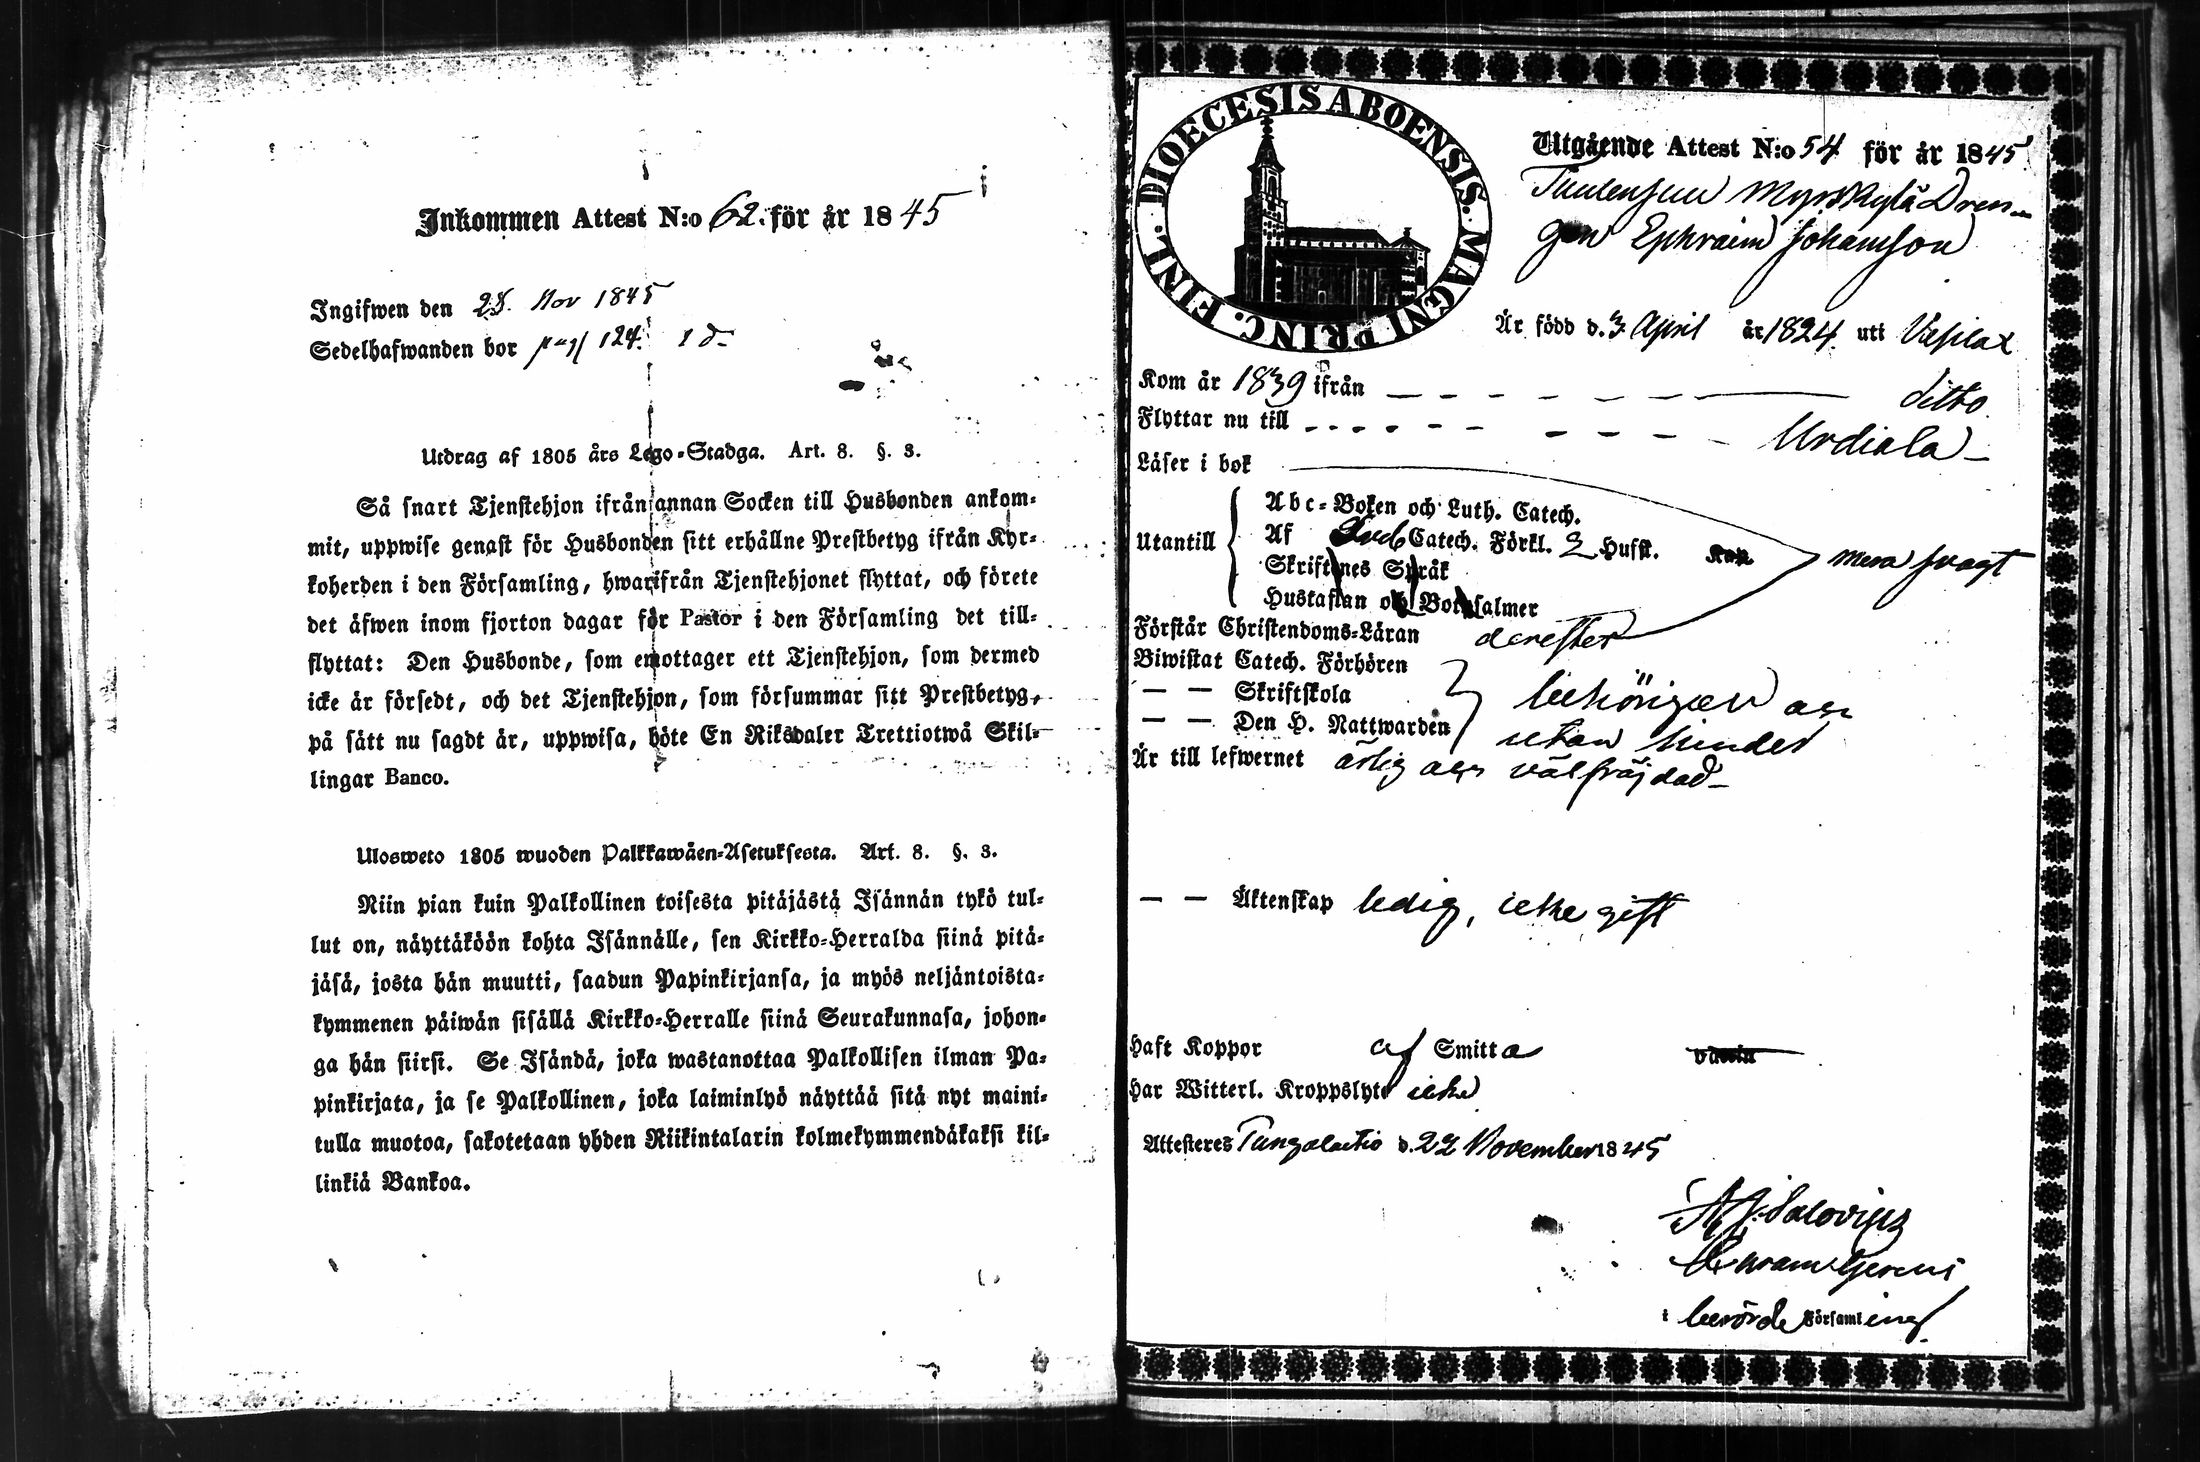 Inkommen Attest N:o 62. för år 1845
Ingifwen den 28. Nov 1845
Sedelhafwanden bor pag 124.
Utdrag af 1805 års Lego-Stadga. Art. 8. §. 3.
Så snart Tjenstehjon ifrån annan Socken till Husbonden ankom-
mit, uppwise genast för Husbonden sitt erhållne Prestbetyg ifrån Kyr-
koherden i den Församling, hwarifrån Tjenstehjonet flyttat, och förete
det äfwen inom fjorton dagar för Pastor i den Församling det till-
flyttat: Den Husbonde, som emottager ett Tjenstehjon, som dermed
icke är försedt, och det Tjenstehjon, som försummar sitt Prestbetyg,
på sätt nu sagdt är, uppwisa, böte En Riksdaler Trettiotwå Skil-
lingar Banco.
Ulosweto 1805 wuoden Palkkawäen-Asetuksesta. Art. 8. §. 3.
Niin pian kuin Palkollinen toisesta pitäjästä Isännän tykö tul-
lut on, näyttäköön kohta Isännälle, sen Kirkko-Herralda siinä pitä-
jäsä, josta hän muutti, saadun Papinkirjansa, ja myös neljäntoista-
kymmenen päiwän sisällä Kirkko-Herralle siinä Seurakunnasa, johon-
ga hän siirsi. Se Isändä, joka wastanottaa Palkollisen ilman Pa-
pinkirjata, ja se Palkollinen, joka laiminlyö näyttää sitä nyt maini-
tulla muotoa, sakotetaan yhden Riikintalarin kolmekymmendäkaksi kil-
linkiä Bankoa.
DIOECESIS ABOENSIS. MAGNI PRINC. FINL.
Utgående Attest N:o 54 för år 1845
Myrskylä Dren-
gen Ephraim Johansson
Är född d. 3 April år 1824 uti Vesilax
Kom år 1839 ifrån ditto
Flyttar nu till Urdiala
Läser i bok
Utantill
Abc-Boken och Luth. Catech.
Af Sveb Catech. Förkl. 2 Hufst. Kap mera svagt
Skriftenes Språk
Hustaflan och Botpsalmer
Förstår Christendoms-Läran derefter
Biwistat Catech. Förhören
— — Skriftskola behörigen och
— — Den H. Nattwarden utan hinder
Är till lefwernet ärlig och välfräjdad
— — Äktenskap ledig, icke gift
Haft Koppor af Smitta vaccin
Har Witterl. Kroppslyte icke
Attesteres Tungelaitio d. 22 November 1845
Salovius
i berörde Församling